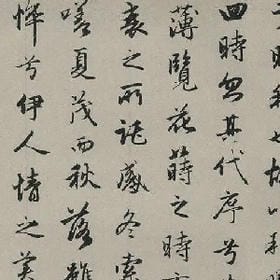 四時忽其代序兮
薄覽花蒔之時
衰之所託感冬索
嗟夏茂而秋落雖
悴兮伊人情之美